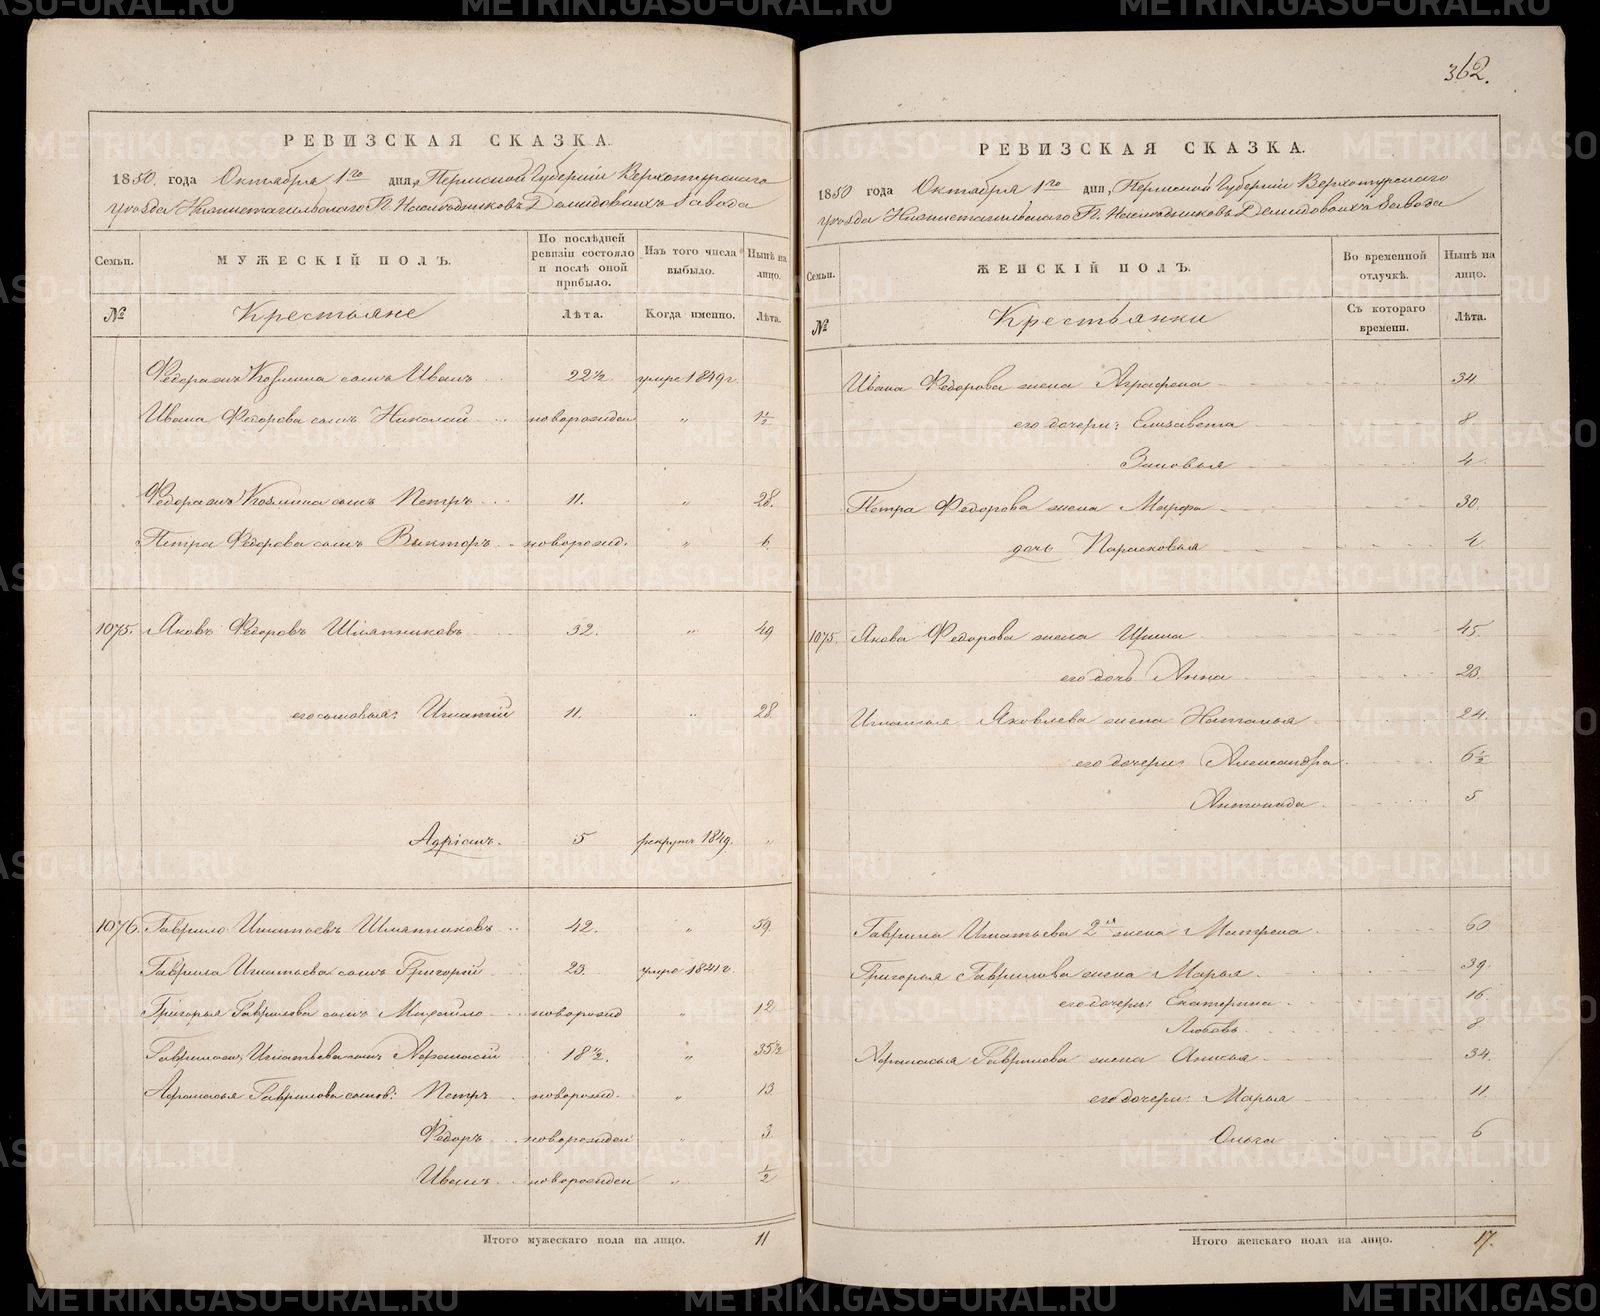 362.
РЕВИЗСКАЯ СКАЗКА.
1850. года Октября 1го дня, Пермской Губернiи Верхотурскаго
уѣзда Нижнетагильскаго Г.г. Наслѣдниковъ Демидовыхъ Завода
Семьи.
МУЖЕСКIЙ ПОЛЪ.
По послѣдней ревизiи состояло и послѣ оной прибыло.
Изъ того числа выбыло.
Нынѣ на лицо.
№
Крестьяне
Лѣта.
Когда именно.
Лѣта.
Федора Козмина сынъ Иванъ 22½ умре 1849 г.
Ивана Федорова сынъ Николай новорожден " 1½
Федора Козмина сынъ Петръ 11. " 28.
Петра Федорова сынъ Викторъ новорожд. " 6
1075. Яковъ Федоровъ Шляпниковъ 32. " 49
его сыновья: Игнатiй 11. " 28.
Адрiанъ. 5 рекрутъ 1849. "
1076. Гаврило Игнатьевъ Шляпниковъ 42. " 59.
Гаврила Игнатьева сынъ Григорiй 23. умре 1841 г.
Григорья Гаврилова сынъ Михайло новорожд " 12
Гаврила Игнатьева сынъ Афанасiй 18½. " 35½
Афанасья Гаврилова сынов: Петръ новорожд. " 13.
Федоръ новорожден " 3.
Иванъ новорожден " ½
Итого мужескаго пола на лицо. 11
РЕВИЗСКАЯ СКАЗКА.
1850 года Октября 1го дня, Пермской Губернiи Верхотурскаго
уѣзда Нижнетагильскаго Г.г. Наслѣдниковъ Демидовыхъ Завода
Семьи.
ЖЕНСКIЙ ПОЛЪ.
Во временной отлучкѣ.
Нынѣ на лицо.
№
Крестьянки
Съ котораго времени.
Лѣта.
Ивана Федорова жена Аграфена 34
его дочери: Елизавета 8
Зиновья 4
Петра Федорова жена Марфа 30
дочь Парасковья 4
1075. Якова Федорова жена Ирина 45
его дочь Анна 23.
Игнатья Яковлева жена Наталья 24.
его дочери: Александра 6½
Антонида 5
Гаврила Игнатьева 2я жена Матрена 60
Григорья Гаврилова жена Марья 39.
его дочери: Екатерина 16
Любовь 8
Афанасья Гаврилова жена Анисья 34.
его дочери: Марья 11.
Ольга 6
Итого женскаго пола на лицо. 17.
METRIKI.GASO-URAL.RU